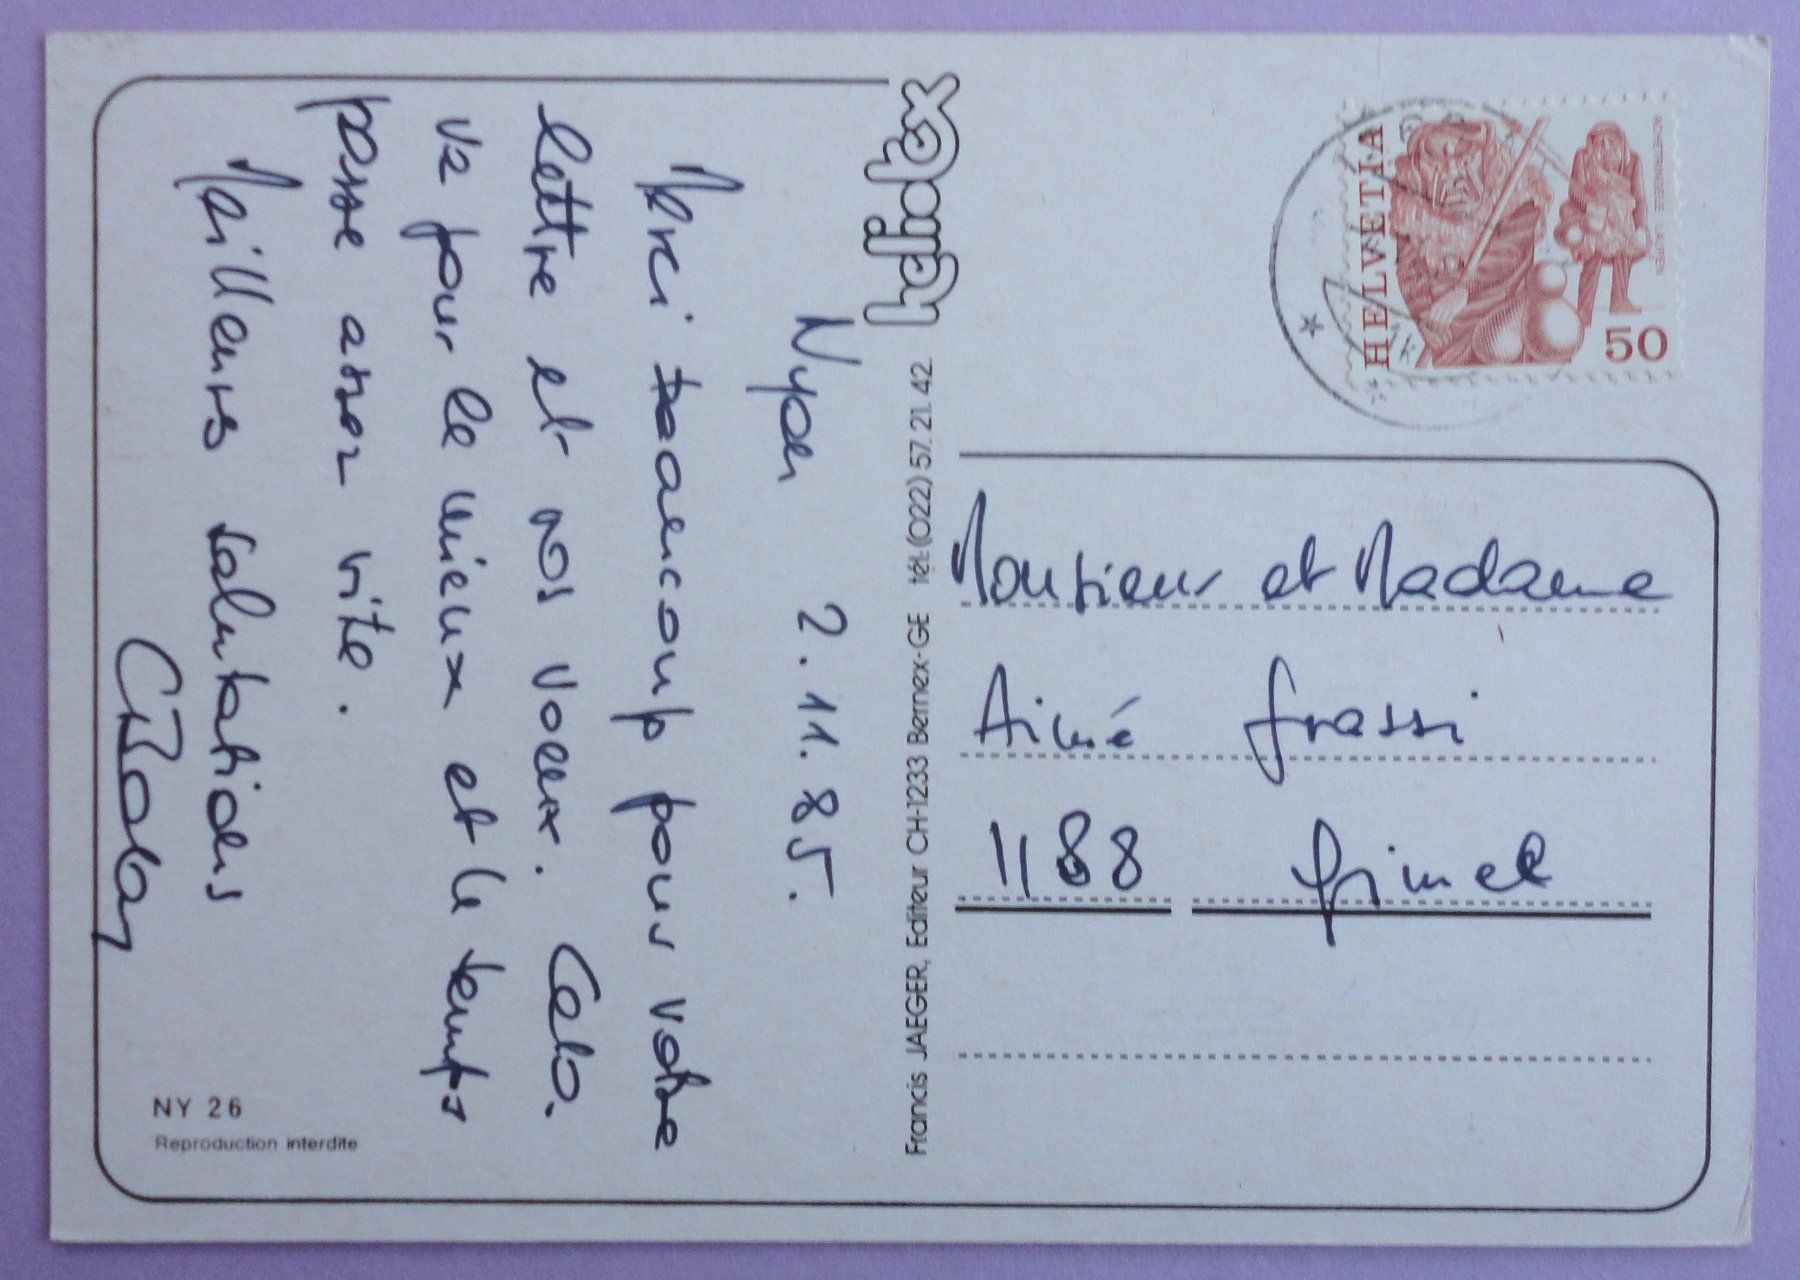 Nyon 2.11.85.
Merci beaucoup pour votre
lettre et vos voeux. Cela
va pour le mieux et le temps
passe assez vite.
Meilleures salutations
helidtex
Francis JAEGER, Editeur CH-1233 Bernex-GE tél: (022) 57. 21. 42
NY 26
Reproduction interdite
HELVETIA
50
Monsieur et Madame
Aimé Grassi
1188 Gimel